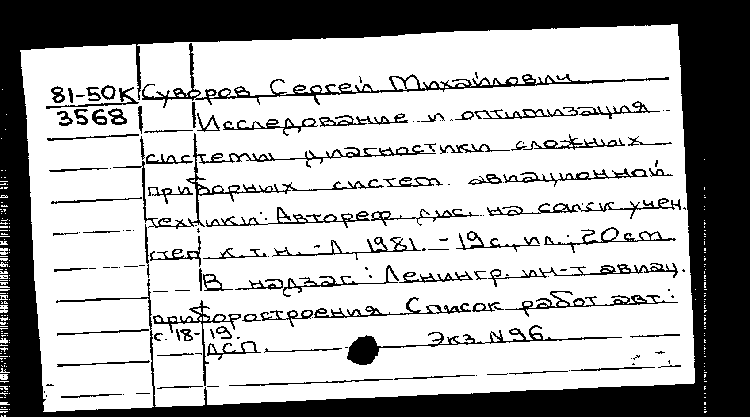 81-50К Суворов, Сергей Михайлович
3568 Исследование и оптимизация
системы диагностики сложных
приборных систем авиационной
техники: Автореф. дис. на соиск учен.
степ к.т.н. - Л, 1981. - 19 с., ил.; 20 см
В надзаг.: Ленингр. ин-т авиац.
приборостроения Список работ авт.:
с. 18-19
ДСП. Экз. N96.